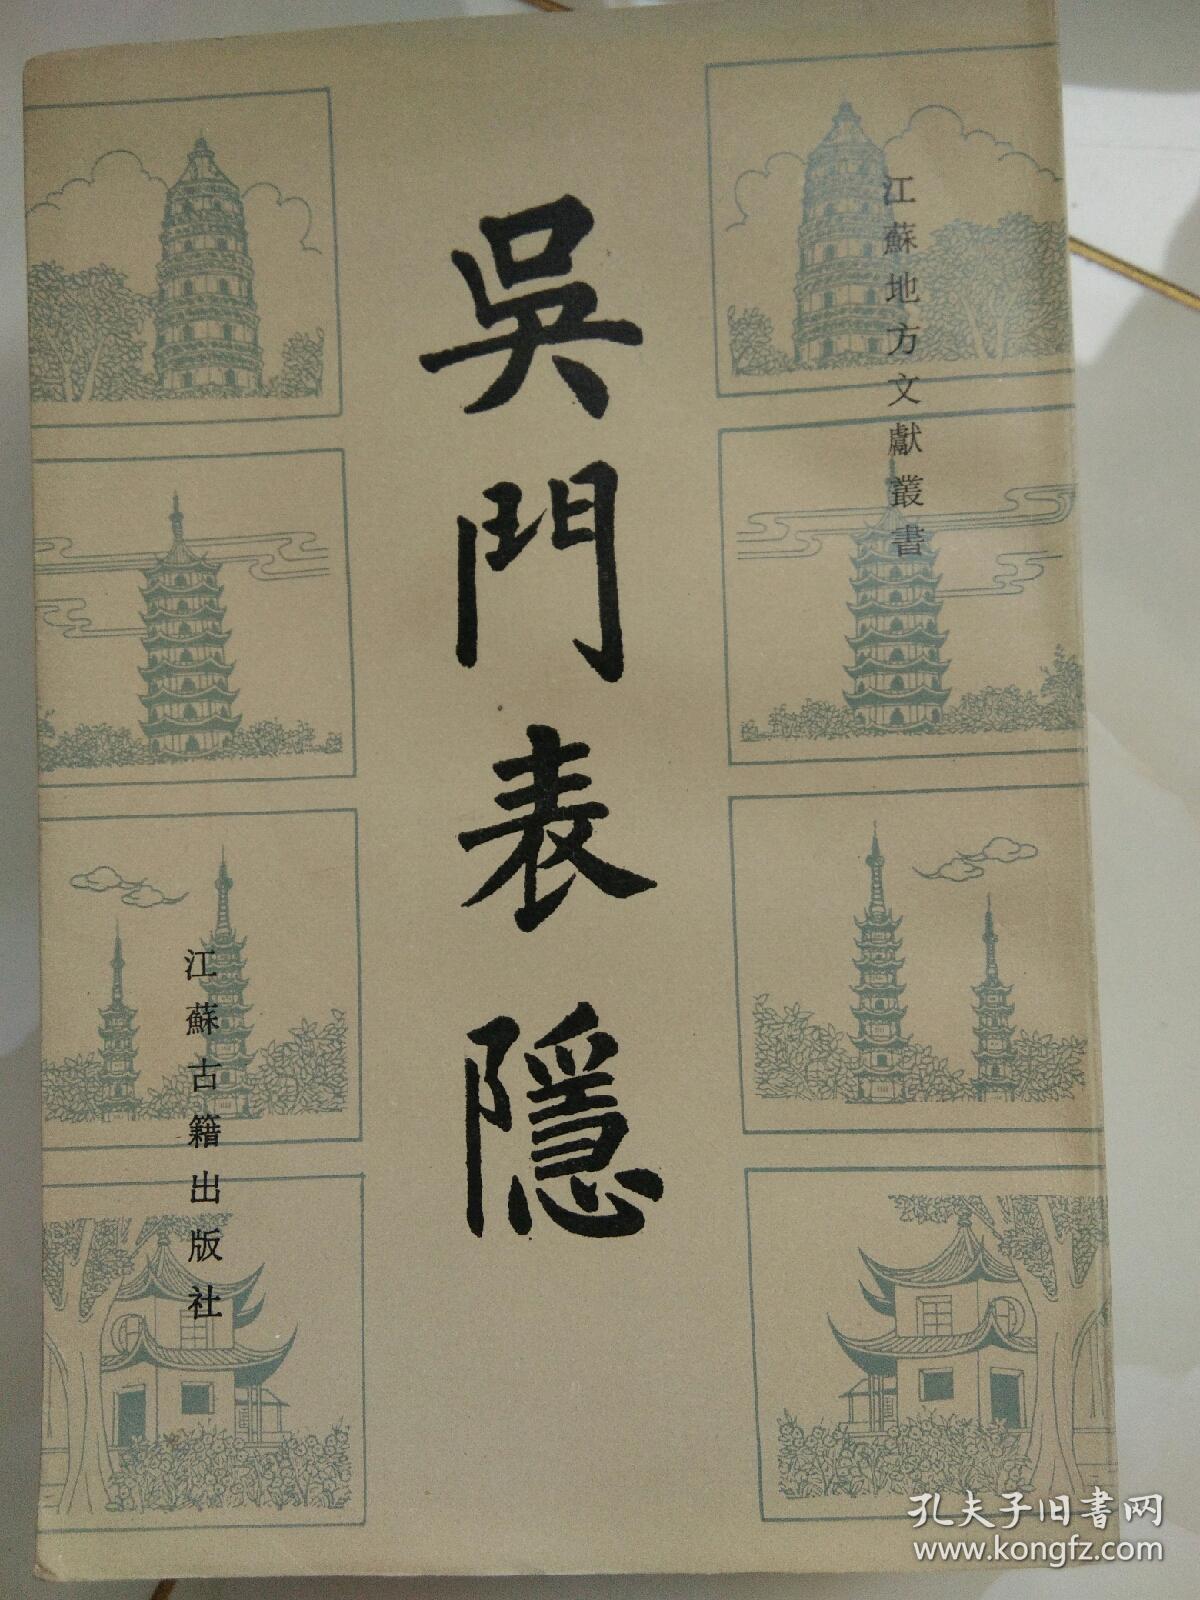 江蘇地方文獻叢書
吳門表隱
江蘇古籍出版社
孔夫子旧书网
www.kongfz.com